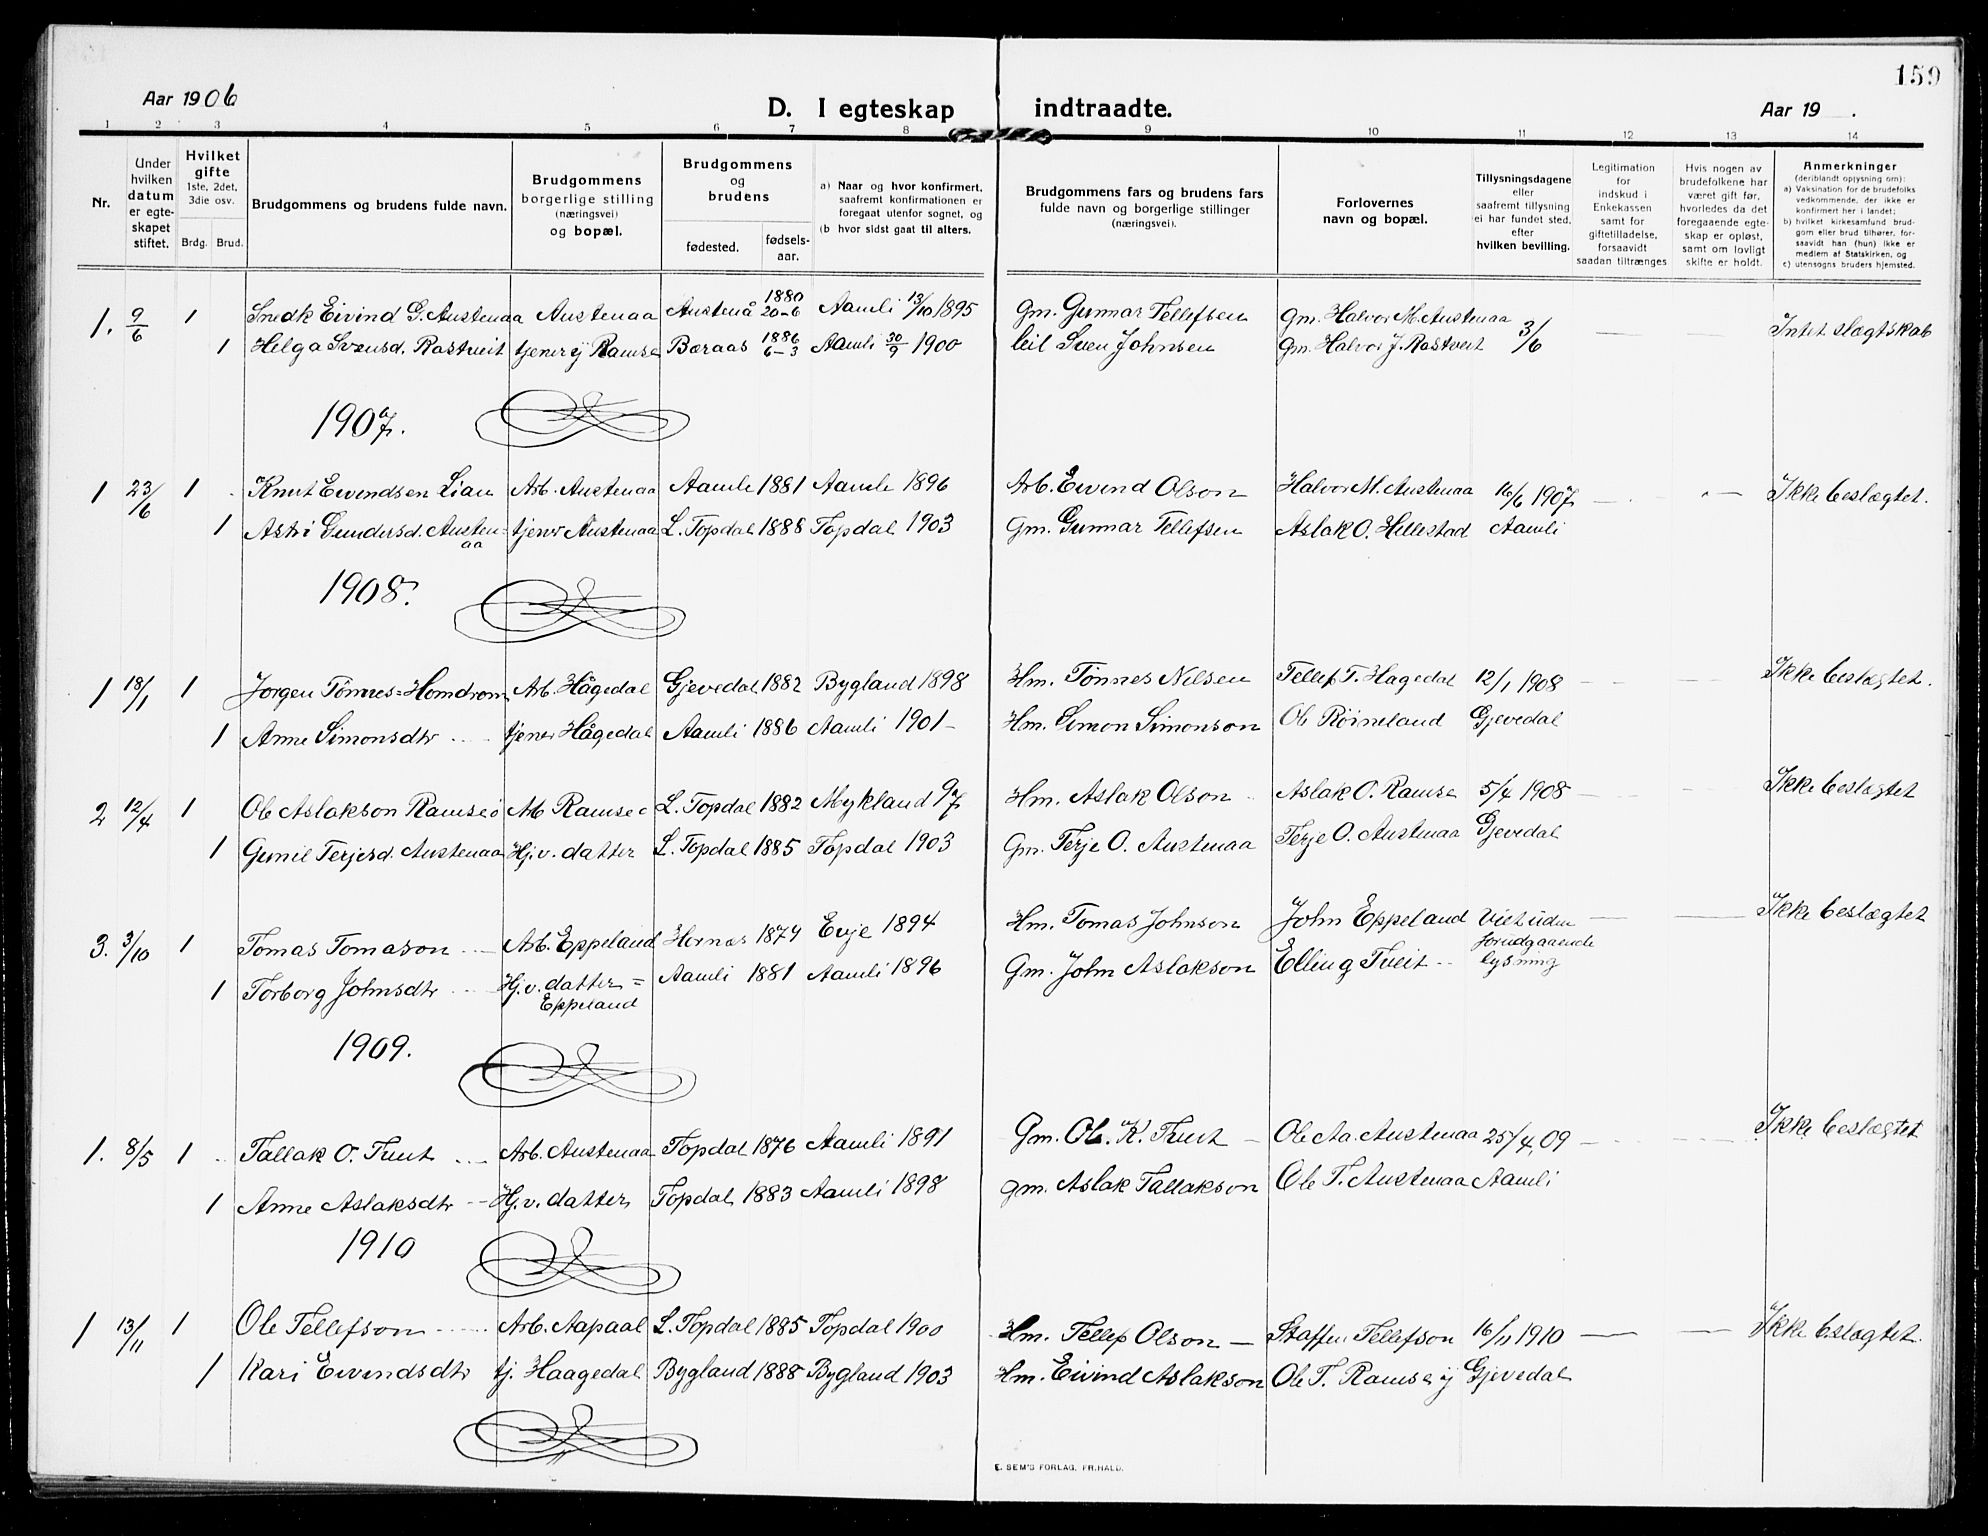 159
Aar 1906
D. I egteskap indtraadte.
Aar 19 .
1 2 3 4 5 6 7 8 9 10 11 12 13 14
Nr.
Under hvilken datum er egteskapet stiftet.
Hvilket gifte 1ste, 2det, 3die osv.
Brdg. Brud.
Brudgommens og brudens fulde navn.
Brudgommens borgerlige stilling (næringsvei) og bopæl.
Brudgommens og brudens
fødested. fødsels-aar.
a) Naar og hvor konfirmert, saafremt konfirmationen er foregaat utenfor sognet, og
(b hvor sidst gaat til alters.
Brudgommens fars og brudens fars fulde navn og borgerlige stillinger (næringsvei).
Forlovernes navn og bopæl.
Tillysningsdagene eller saafremt tillysning ei har fundet sted, efter hvilken bevilling.
Legitimation for indskud i Enkekassen samt for giftetilladelse, forsaavidt saadan tiltrænges
Hvis nogen av brudefolkene har været gift før, hvorledes da det foregaaende egteskap er opløst, samt om lovligt skifte er holdt.
Anmerkninger (deriblandt opjysning om):
a) Vaksination for de brudefolks vedkommende, der ikke er konfirmert her i landet;
b) hvilket kirkesamfund brudgom eller brud tilhører, forsaavidt han (hun) ikke er medlem af Statskirken, og
c) utensogns bruders hjemsted.
1. 9/6 1 Snedk Eivind G. Austenaa Austenaa Austenå 1880 20-6 Aamli 13/10 1895 Gm. Gunnar Tellefsen Gm. Halvor M. Austenaa 3/6 — — Intet slægtskab
1 Helga Svensd. Rastveit tjener ij Ramse Bæraas 1886 6-3 Aamli 30/9 1900 Leil Sven Johnsen Gm. Halvor J. Rastveit
1907.
1 23/6 1 Knut Eivendsen Lian Arb. Austenaa Aamli 1881 Aamli 1896 Arb. Eivend Olson Halvor M. Austenaa 16/6 1907 — — Ikke beslægtet.
1 Astri Gundersd. Austenaa tjener Austenaa L. Topdal 1888 Topdal 1903 Gm. Gunnar Tellefsen Aslak O. Hillestad Aamli
1908.
1 18/1 1 Jorgen Tønnes= Homdrom Arb. Hågedal Gjevedal 1882 Bygland 1898 Hm. Tønnes Nilsen Tellef T. Hagedal 12/1 1908 — — Ikke beslægtet.
1 Anne Simonsdtr tjener Hågedal Aamli 1886 Aamli 1901- Hm. Simon Simonson Ole Røineland Gjevedal
2 12/4 1 Ole Aslakson Ramse Arb Ramse L. Topdal 1882 Mykland 97 Hm. Aslak Olson Aslak O. Ramse 5/4 1908 — — Ikke beslægtet
1 Gunil Terjesd. Austenaa Hj.v. datter L. Topdal 1885 Topdal 1903 Gm. Terje O. Austenaa Terje O. Austenaa Gjevedal
3. 3/10 1 Tomas Tomason Arb. Eppeland Hornæs 1879 Evje 1894 Hm. Tomas Johnson John Eppeland Viet uden forudgaaende lysning — — Ikke beslægtet
1 Torborg Johnsdtr Hj.v. datter = Eppeland Aamli 1881 Aamli 1896 Gm. John Aslakson Elling Tveit
1909.
1. 8/5 1 Tallak O. Tveit Arb. Austenaa Topdal 1876 Aamli 1891 Gm. Ole K. Tveit — Ole Aa. Austenaa 25/4, 09 — — Ikke beslægtet
1 Anne Aslaksdtr Hj.v. datter Topdal 1883 Aamli 1898 gm. Aslak Tallakson Ole T. Austenaa Aamli
1910
1 13/11 1 Ole Tellefson Arb. Aapaal L. Topdal 1885 Topdal 1900 Hm. Tellef Olson — Staffen Tellefson 16/11 1910 — — Ikke beslægtet.
1 Kari Eivendsdtr tj. Haagedal Bygland 1888 Bygland 1903 Hm. Eivind Aslakson Ole T. Ramse ij Gjevedal
E. SEM'S FORLAG, FR.HALD.